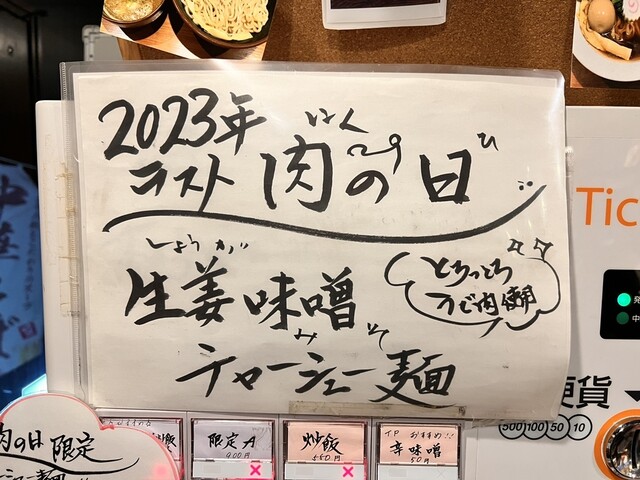 2023年
ラスト 肉の日
にく
ひ
しょうが
生姜味噌
みそ
チャーシュー麺
とろっとろ
使用
Tic
硬貨
500 100 50 10
肉の日 限定
限定A
900円
炒飯
TP おすすめ!!
辛味噌
50円